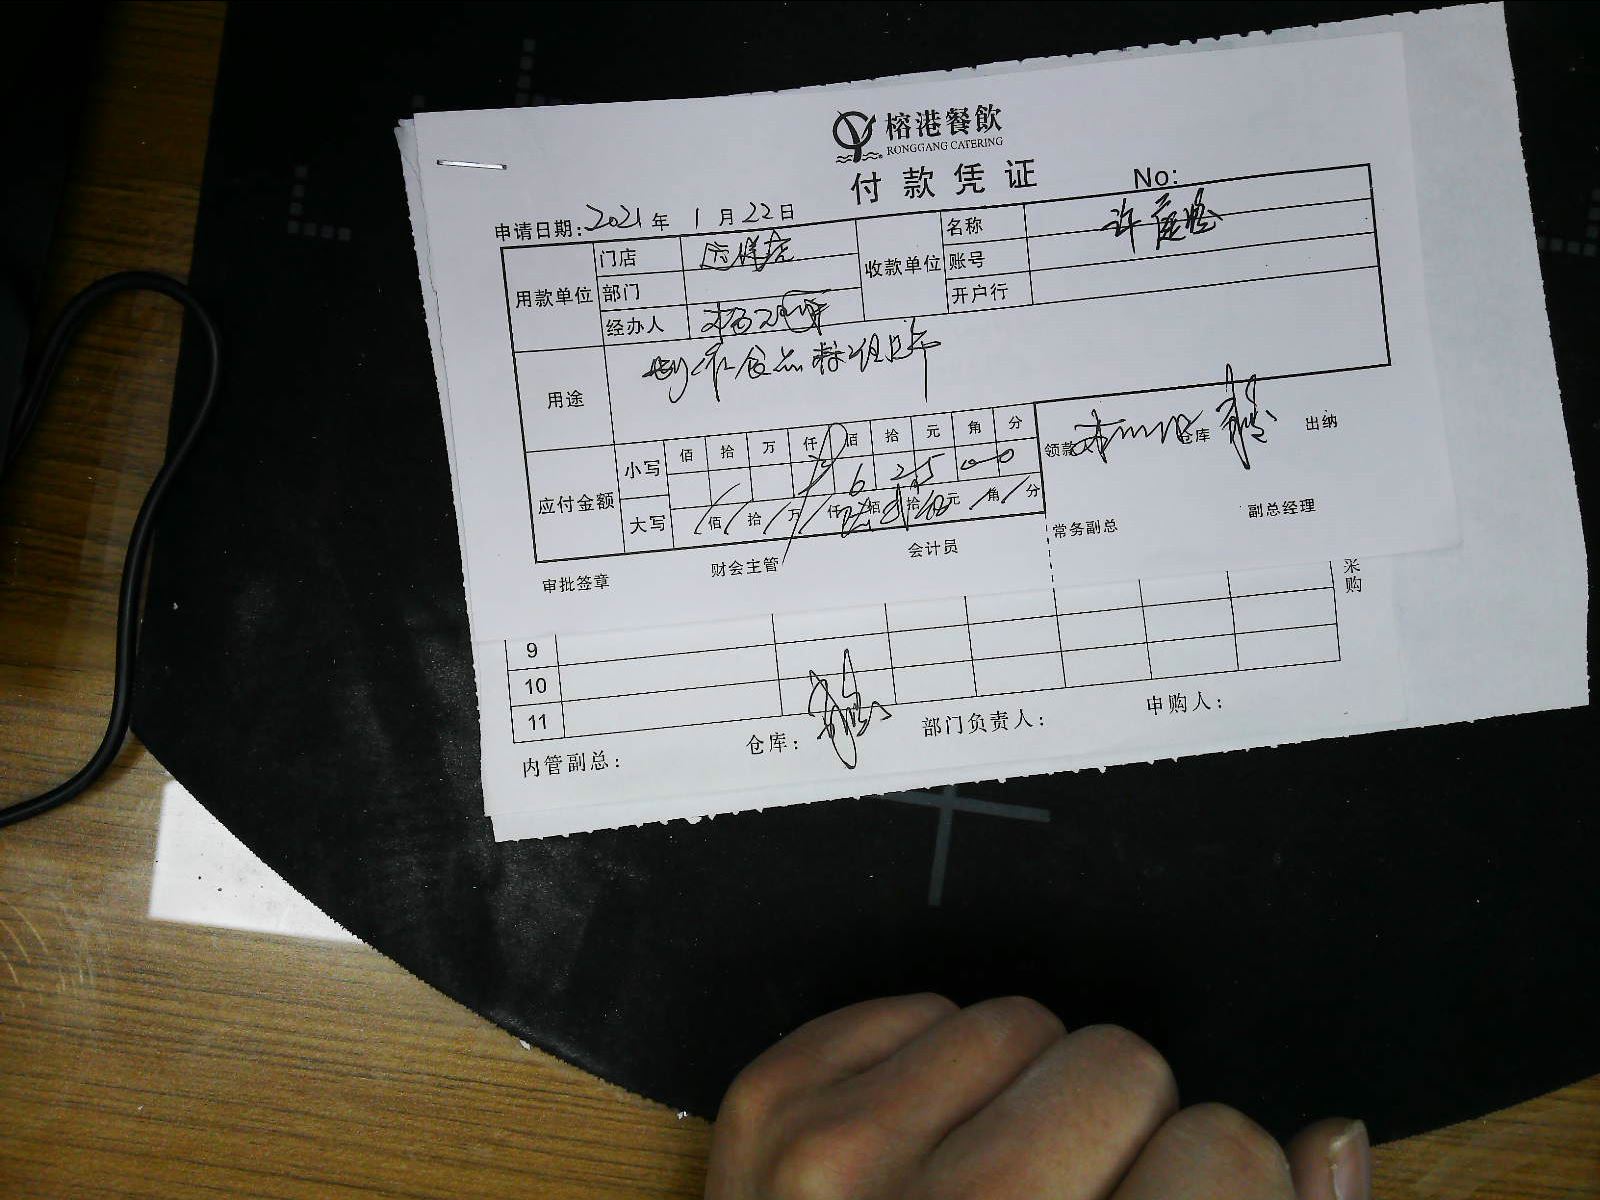 榕港餐飲
RONGGANG CATERING
付款凭证
No:
申请日期: 2021年 1月22日
用款单位 门店 收款单位 名称 许
部门 账号
经办人 开户行
用途
应付金额 小写 佰 拾 万 仟 佰 拾 元 角 分
6 2 5 0 0
大写 佰 拾 万 仟 陆佰 贰拾 伍元 角 分
领款 仓库 出纳
审批签章 财会主管 会计员 常务副总 副总经理
采购
9
10
11
内管副总: 仓库: 部门负责人: 申购人: